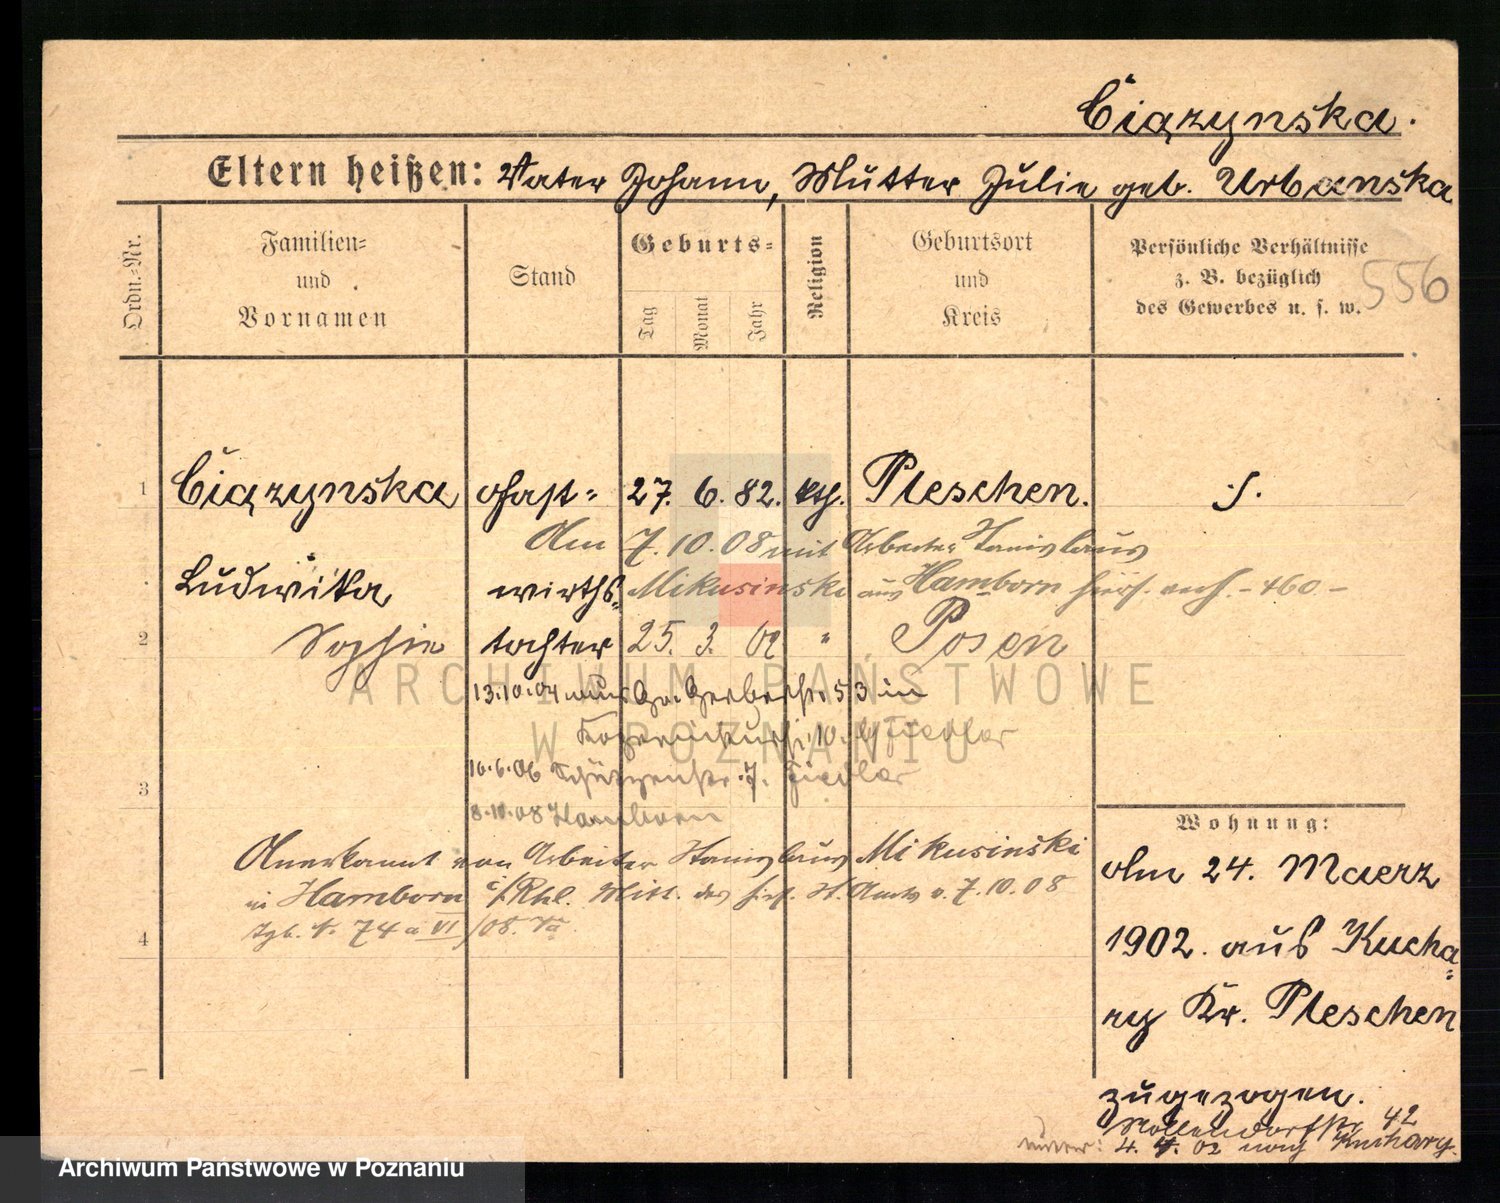 Ciązynska.
Eltern heißen: Vater Johann, Mutter Julie geb. Urbanska
Ordn.-Nr.
Familien-
und
Vornamen
Stand
Geburts-
Tag
Monat
Jahr
Religion
Geburtsort
und
Kreis
Persönliche Verhältnisse
z. B. bezüglich
des Gewerbes u. s. w.
556
1 Ciązynska Gast- 27. 6. 82. kth. Pleschen. ./.
Am 7.10.08 mit Arbeiter Stanislaus
Ludwika wirths-
Mikusinski aus Hamborn hierf. - 460. -
2 Sophie tochter 25. 3. 02 " Posen
13.10.04 Gr. Gerberstr. 53 in
10. b/ Fiedler
16.6.06 Schützenstr. 7. Fiedler
3
8.10.08 Hamborn
Anerkannt von Arbeiter Stanislaus Mikusinski
in Hamborn Mitt. des St. Amts v. 7.10.08
Tgb. N. 74a VI/08.
4
Wohnung:
Am 24. Maerz
1902. aus Kucha-
ry Kr. Pleschen
zugezogen.
Nollendorfstr. 42
4. 4. 02 nach Kuchary.
ARCHIWUM PAŃSTWOWE
W POZNANIU
Archiwum Państwowe w Poznaniu